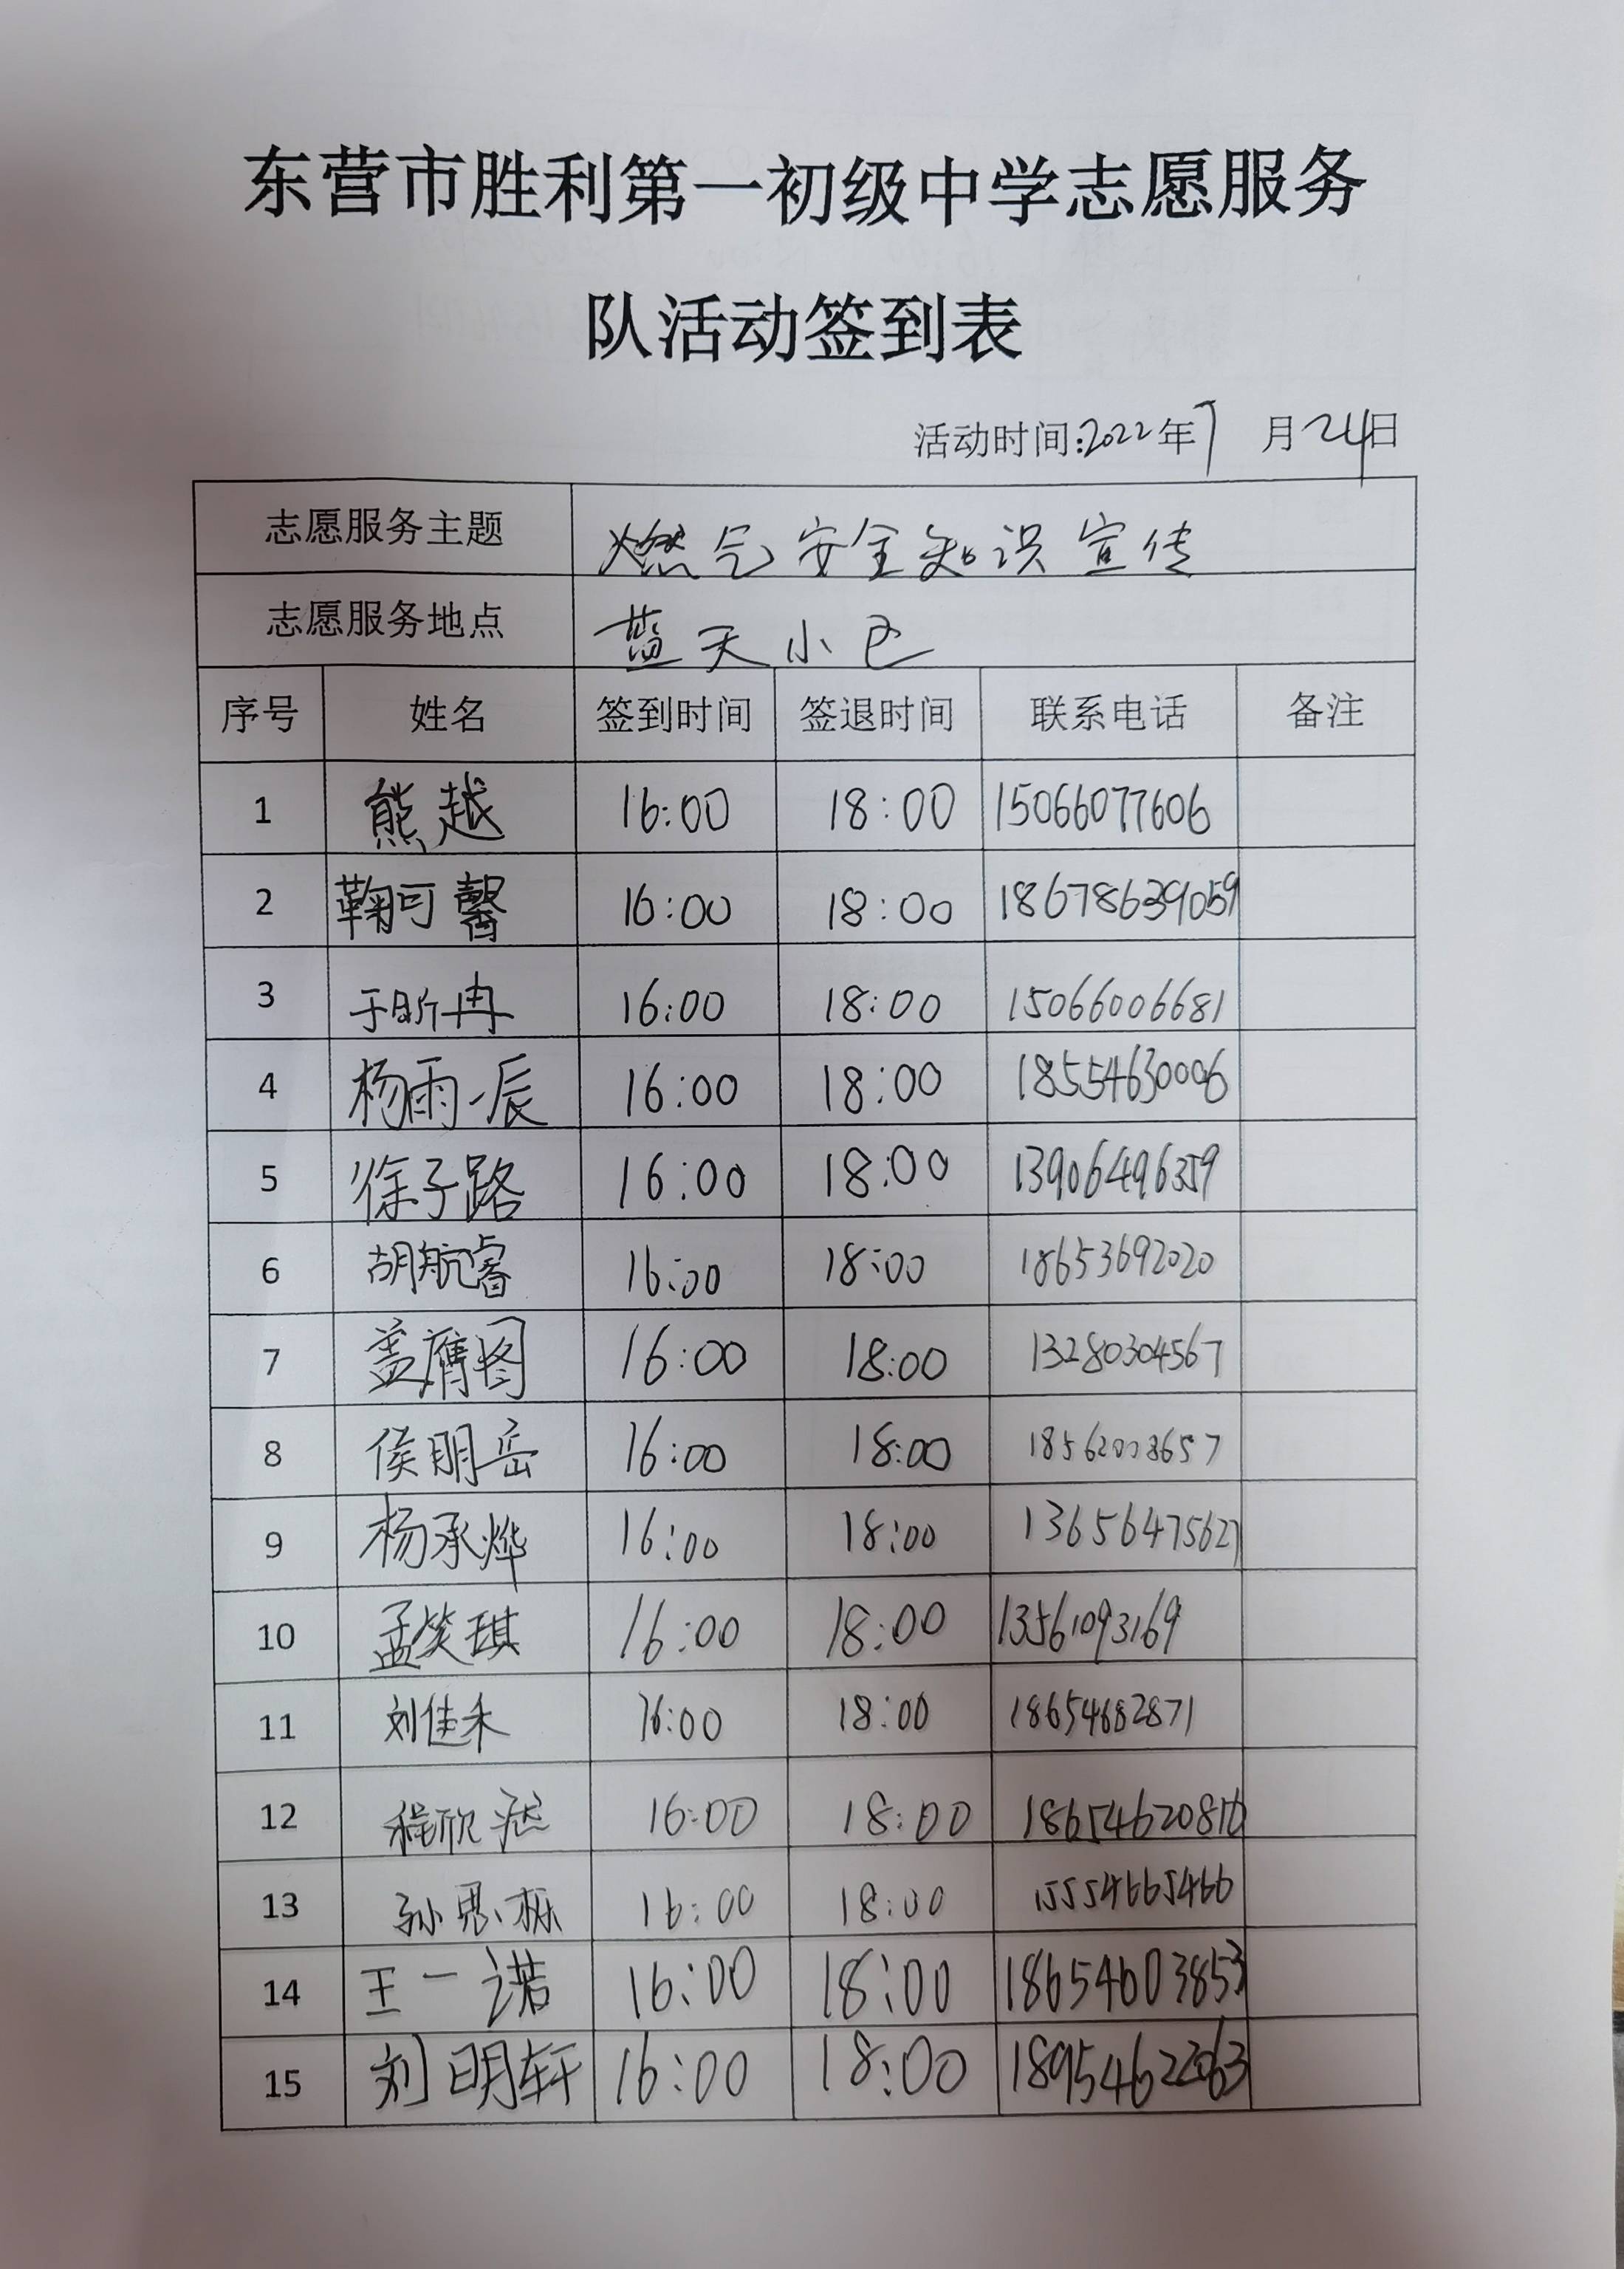 东营市胜利第一初级中学志愿服务
队活动签到表
活动时间:2022年7月24日
志愿服务主题 燃气安全知识宣传
志愿服务地点 蓝天小区
序号 姓名 签到时间 签退时间 联系电话 备注
1 熊越 16:00 18:00 15066077606
2 鞠可馨 16:00 18:00 18678639059
3 于昕冉 16:00 18:00 15066006681
4 杨雨辰 16:00 18:00 18554630006
5 徐子路 16:00 18:00 13906496359
6 胡航睿 16:00 18:00 18653692020
7 盖膺图 16:00 18:00 13280304567
8 侯明岳 16:00 18:00
9 杨承烨 16:00 18:00 13656475627
10 孟笑琪 16:00 18:00 13561093169
11 刘佳禾 16:00 18:00 18654682871
12 程欣然 16:00 18:00
13 孙思栎 16:00 18:00 15554665466
14 王一诺 16:00 18:00 18654603853
15 刘明轩 16:00 18:00 18954622063